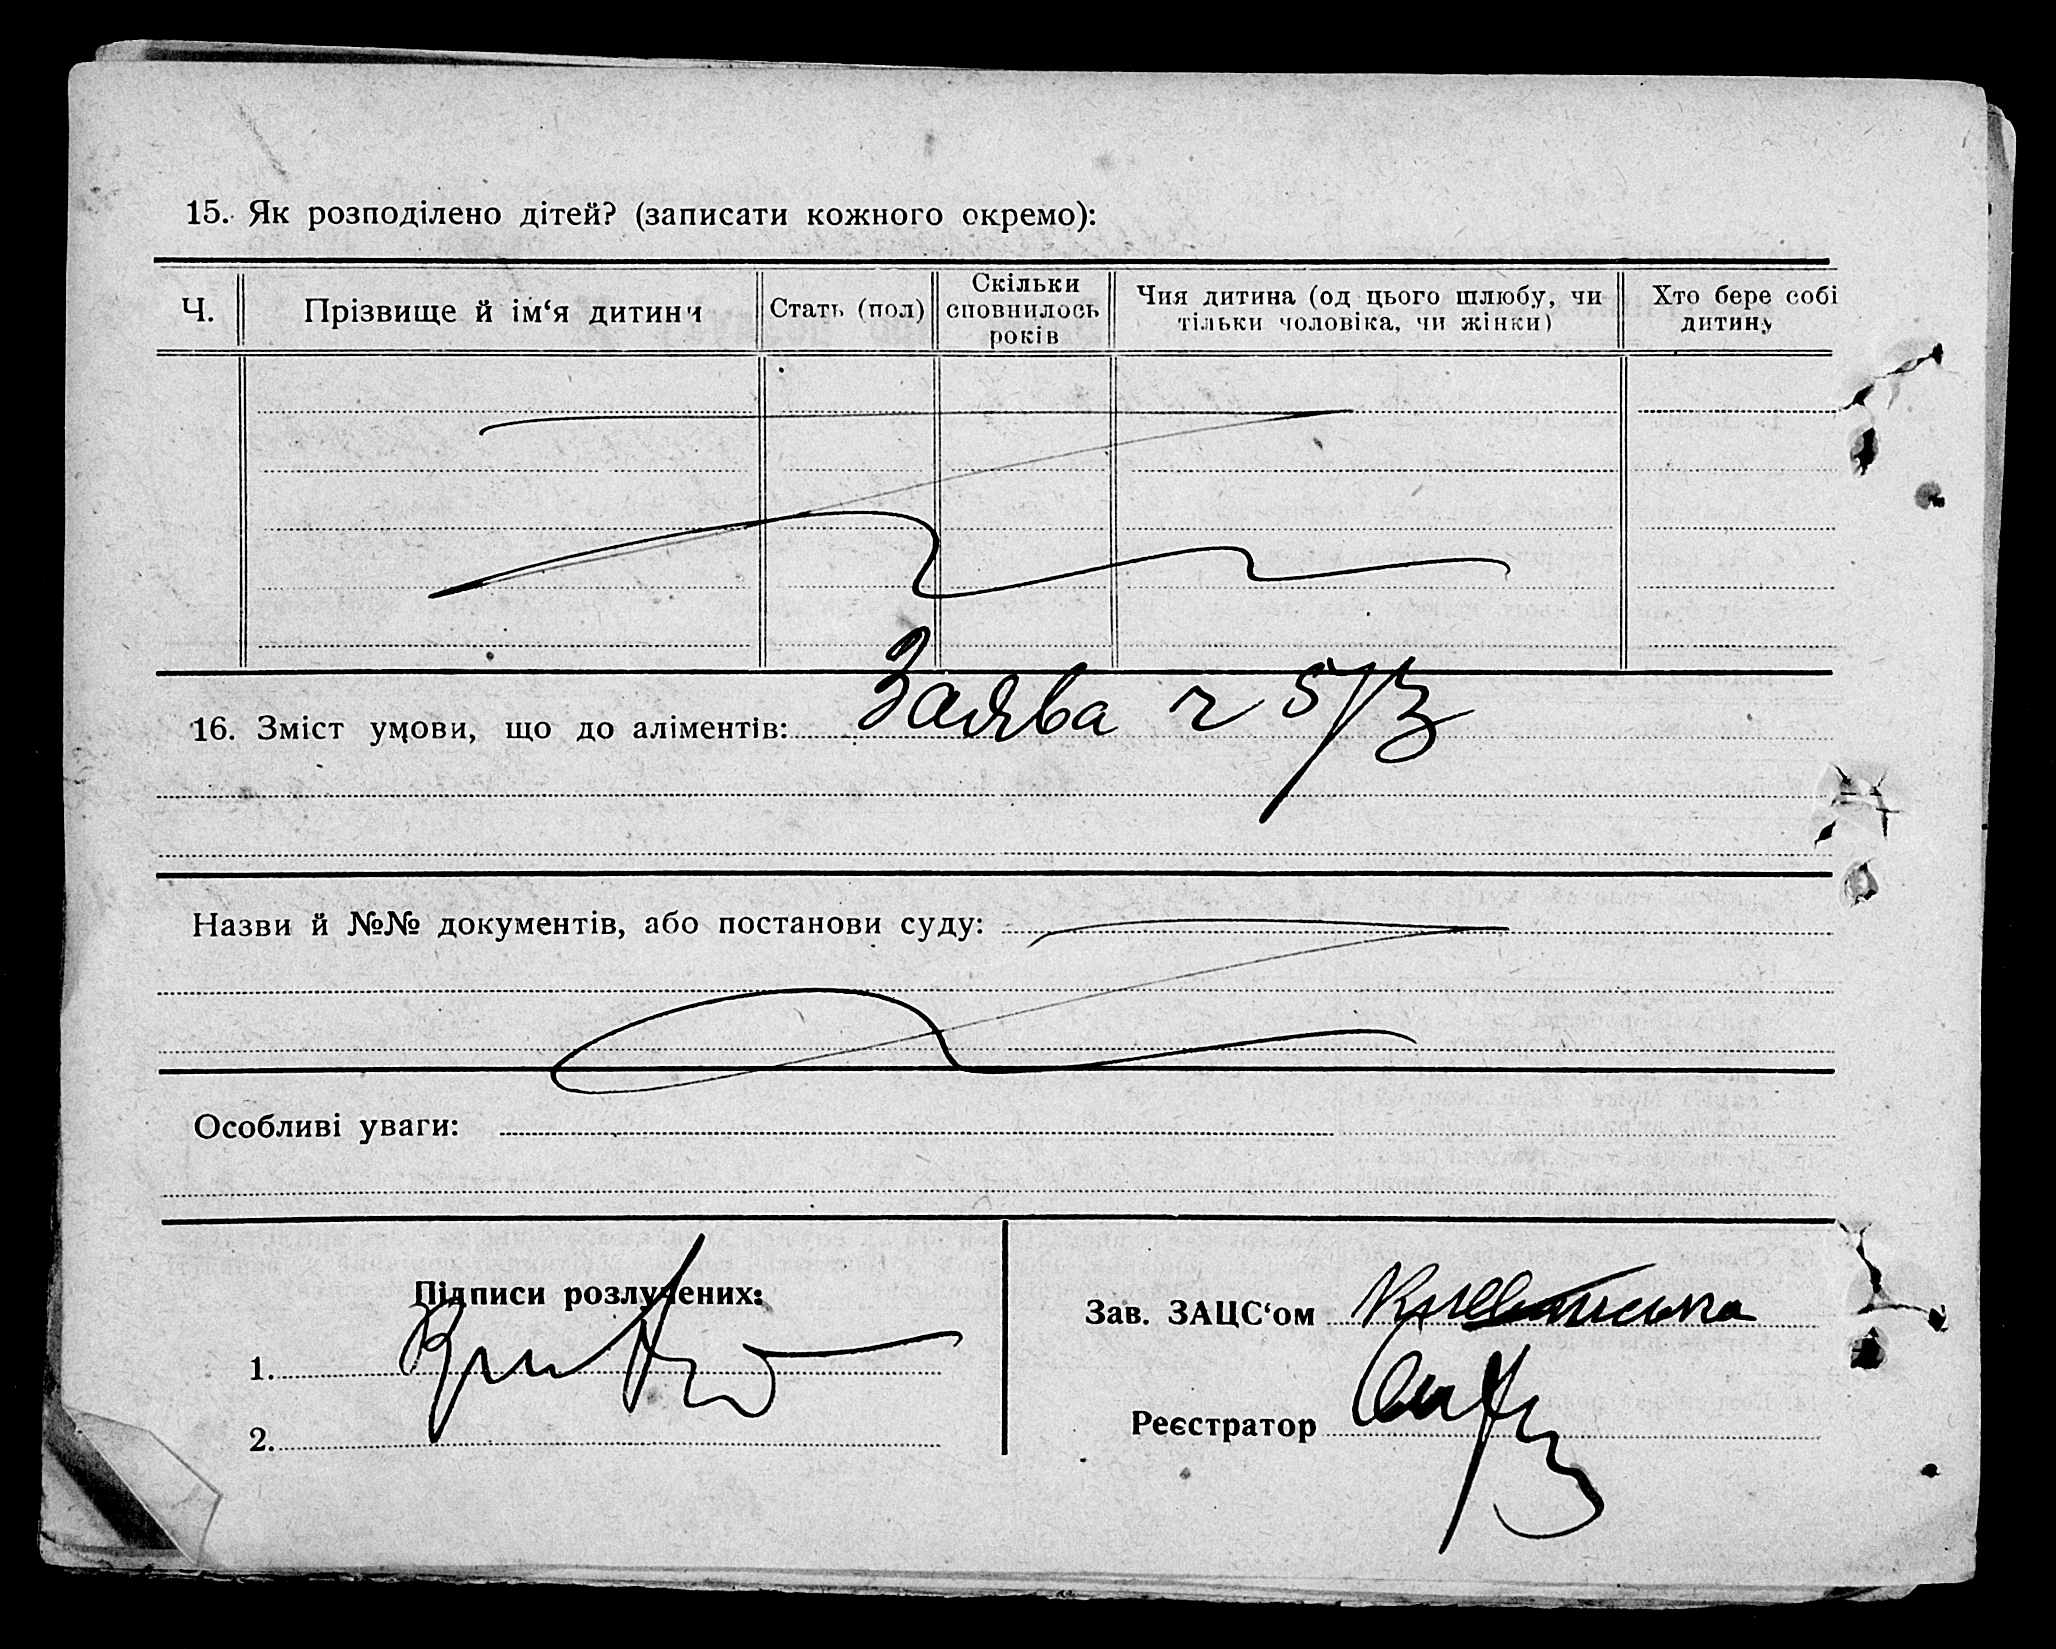 15. Як розподілено дітей? (записати кожного окремо):
Ч. Прізвище й ім‘я дитини Стать (пол) Скільки сповнилось років Чия дитина (од цього шлюбу, чи тільки чоловіка, чи жінки) Хто бере собі дитину
16. Зміст умови, що до аліментів: Заява ч 5/3
Назви й №№ документів, або постанови суду:
Особливі уваги:
Підписи розлучених:
1.
2.
Зав. ЗАЦС‘ом
Реєстратор